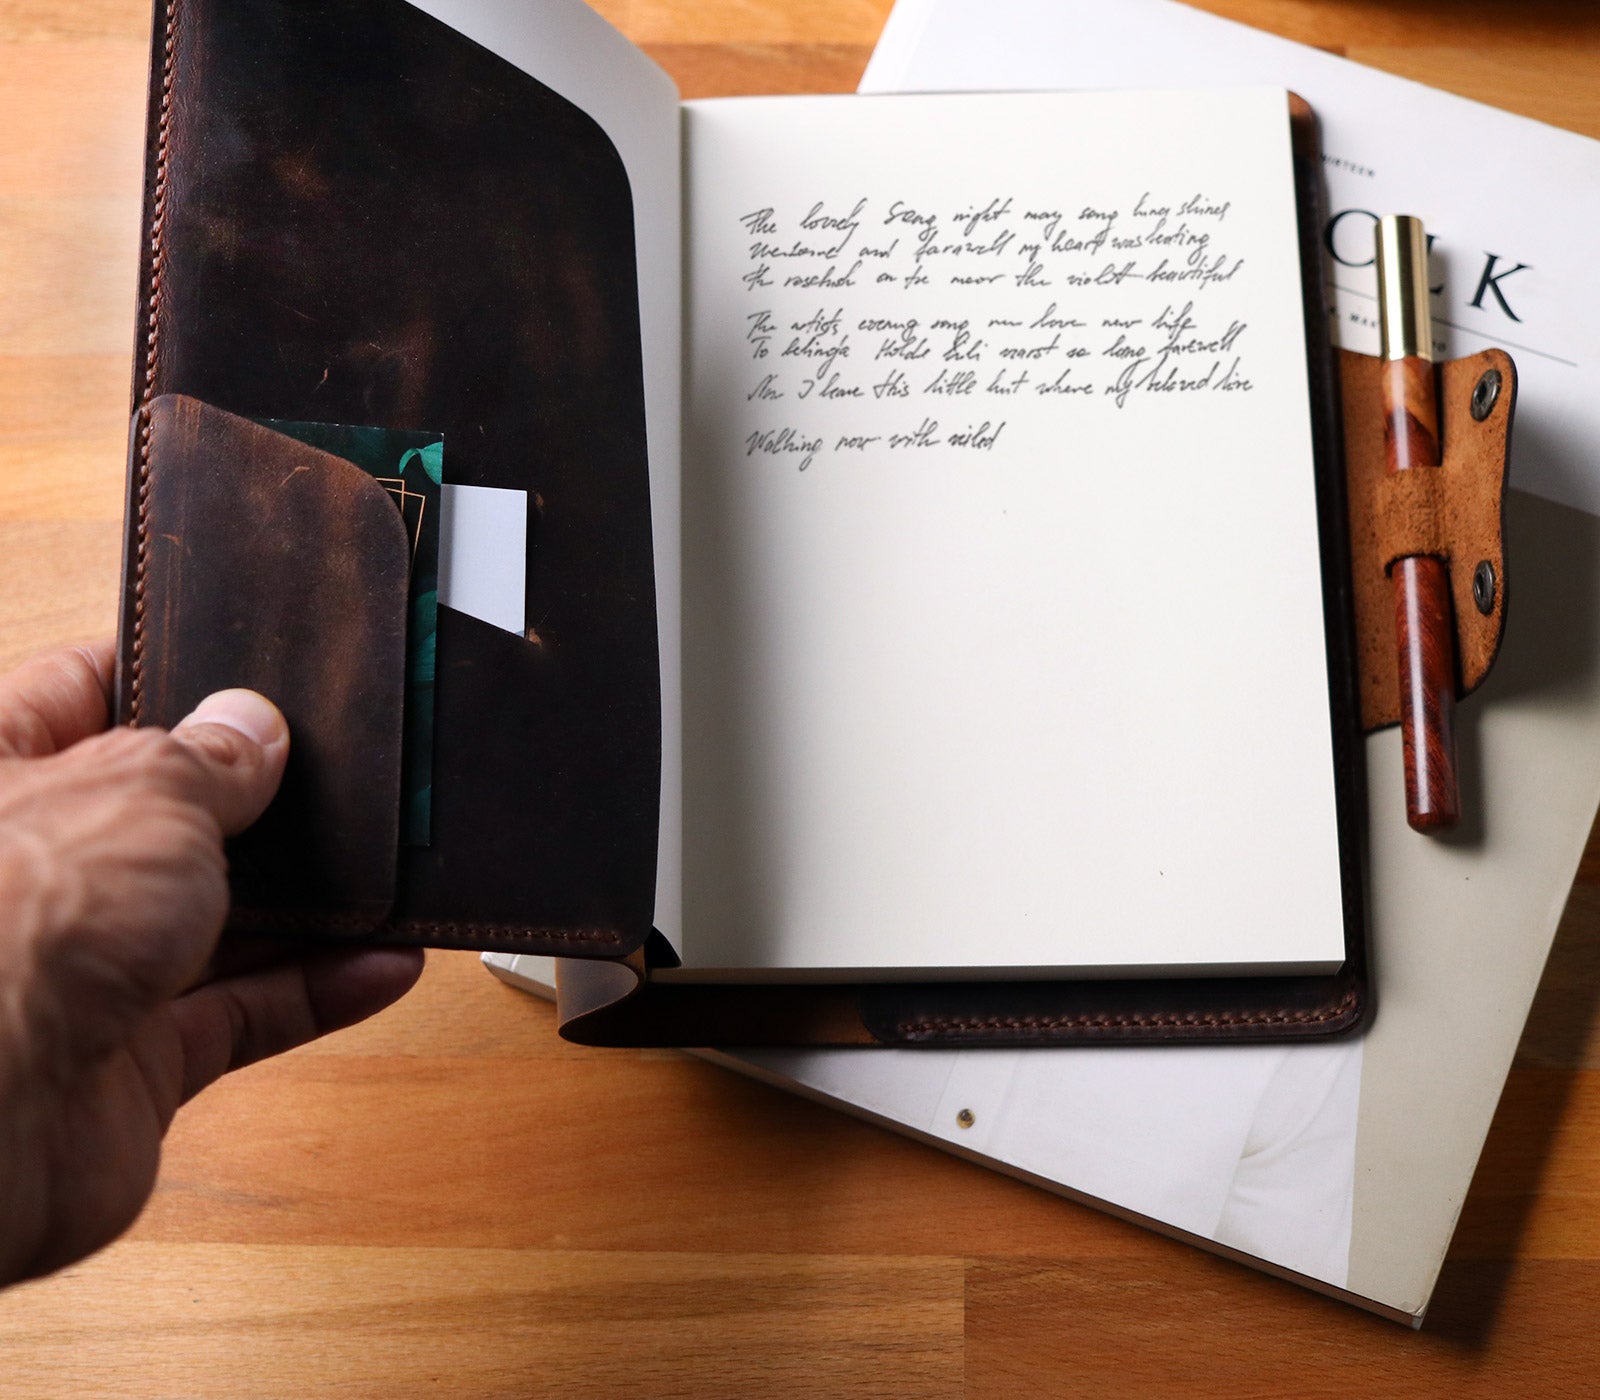 The lovely song night may song shines
Welcome and farewell my heart was beating
the rosebush on the moor the violet beautiful
The artists evening song new love new life
To belinda Holde Lili warst so long farewell
Now I leave this little hut where my beloved live
Walking now with veiled
LK